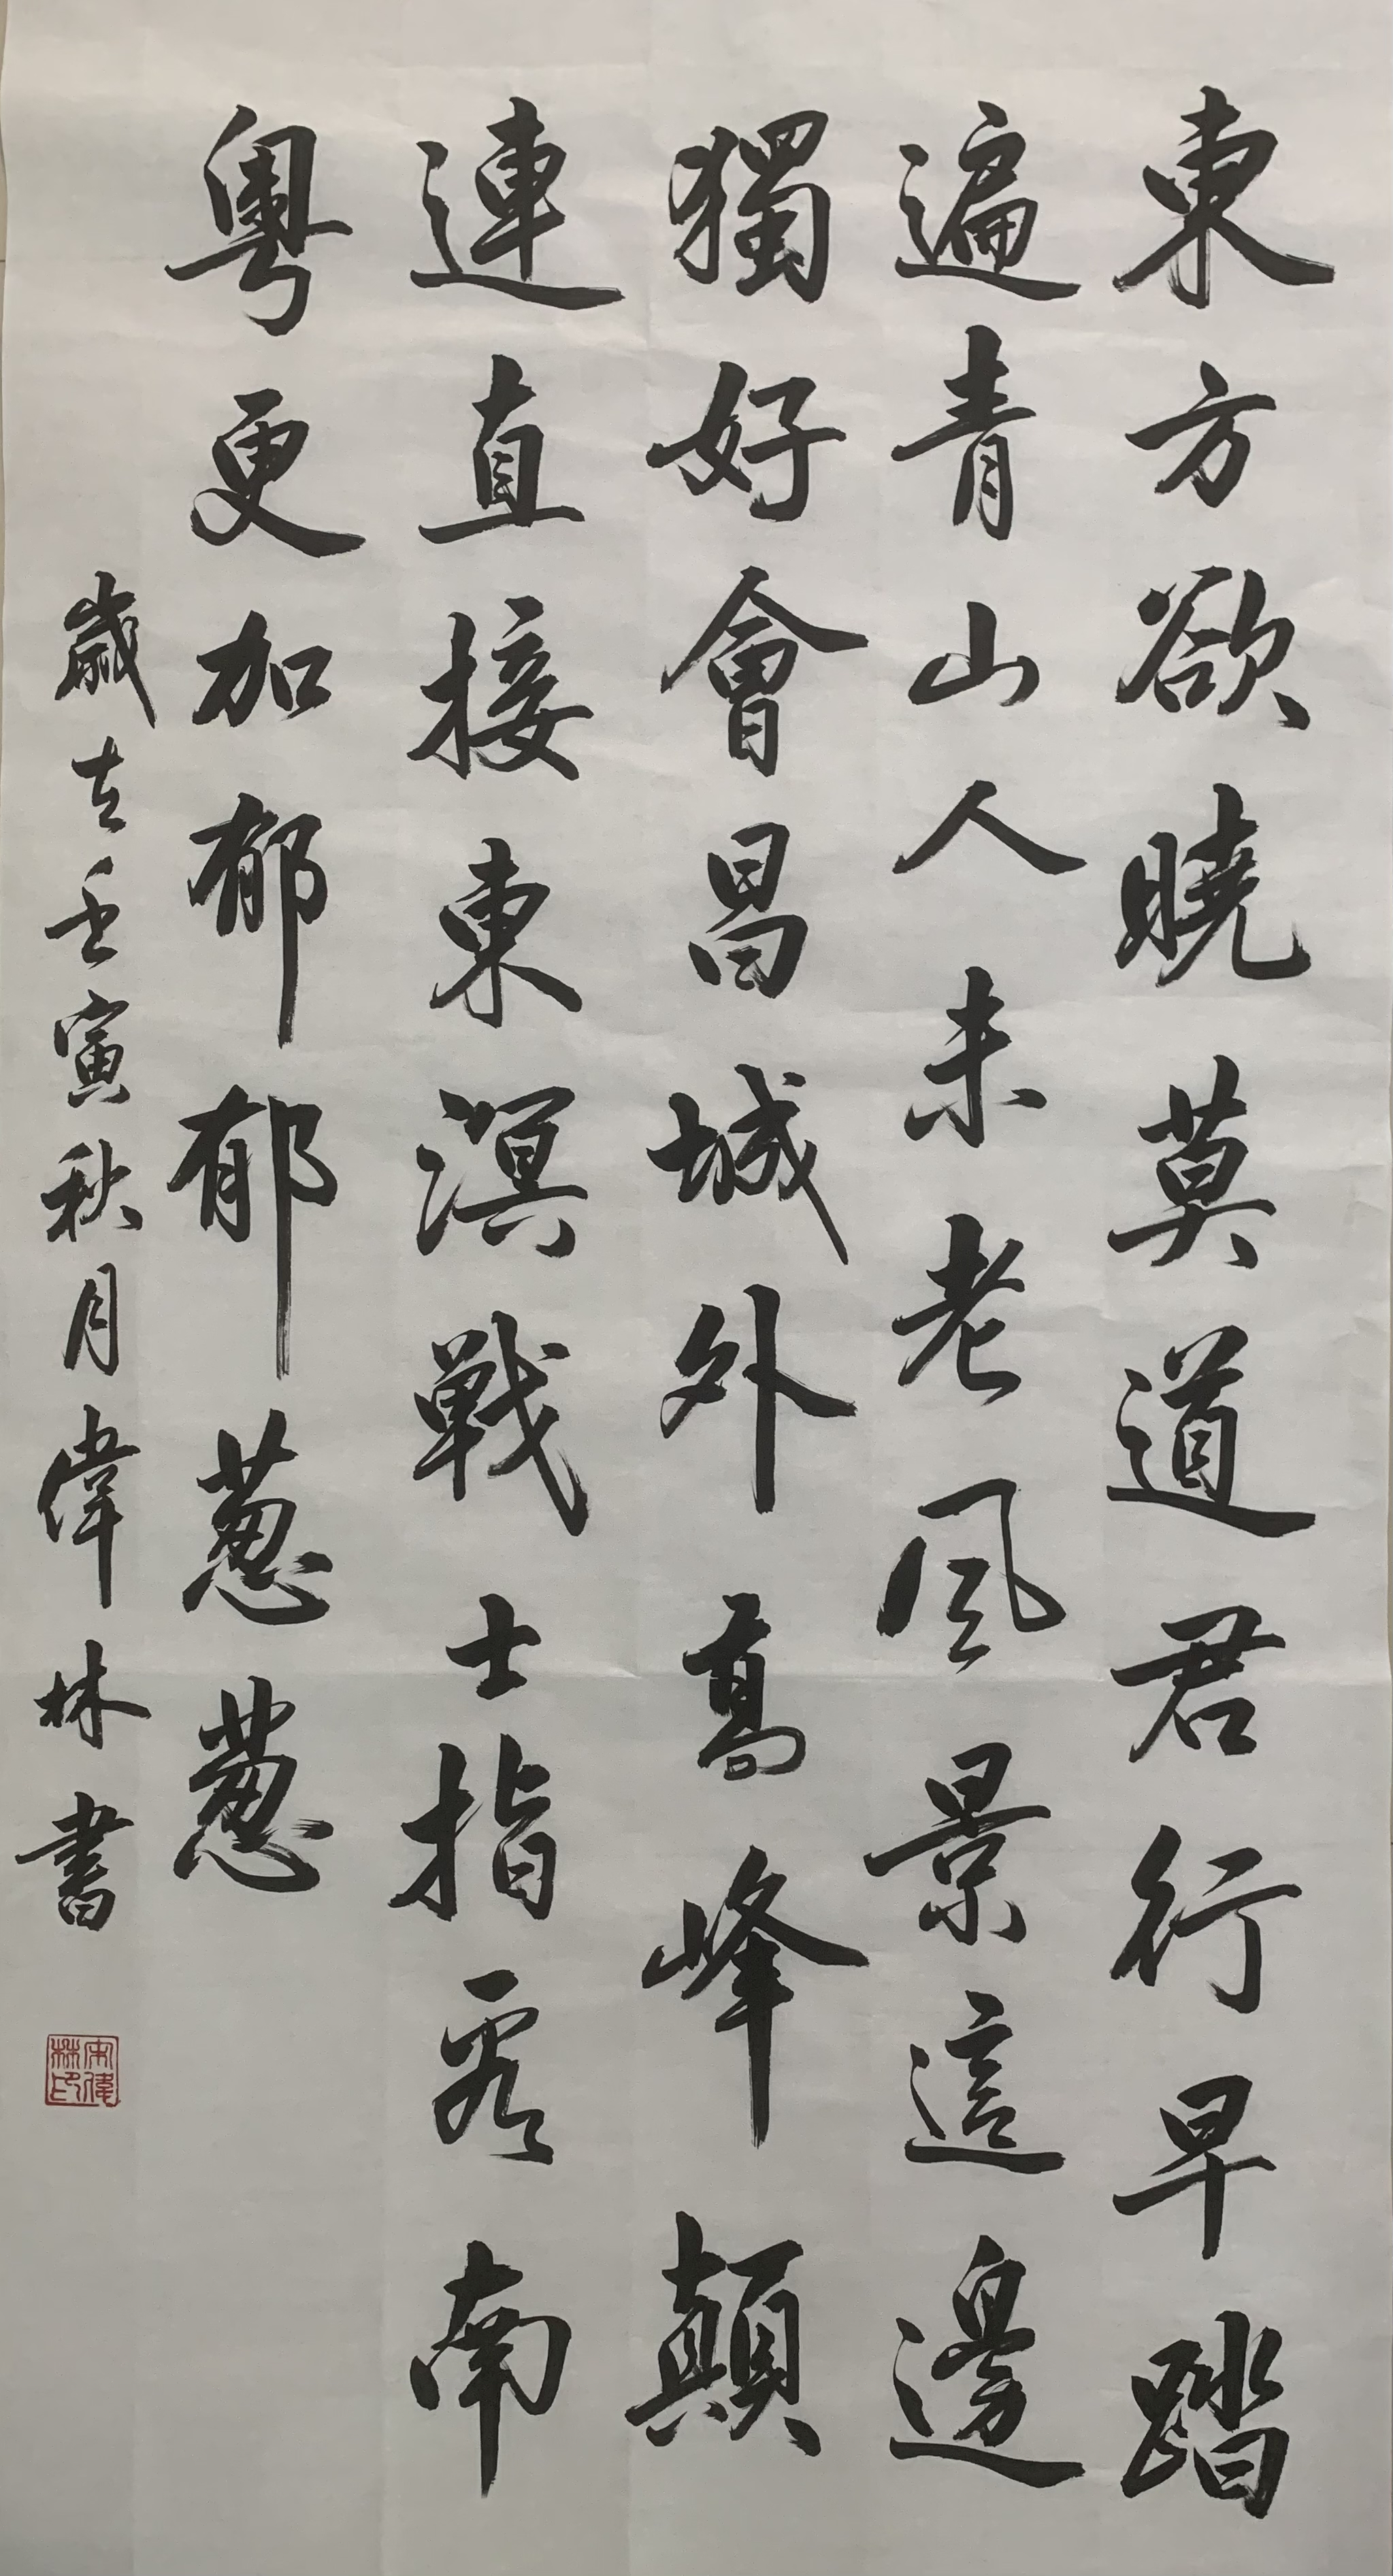 東方欲曉莫道君行早踏
遍青山人未老風景這邊
獨好會昌城外高峰顛
連直接東溟戰士指看南
粵更加郁郁葱葱
歲在壬寅秋月偉林書
宋偉林印